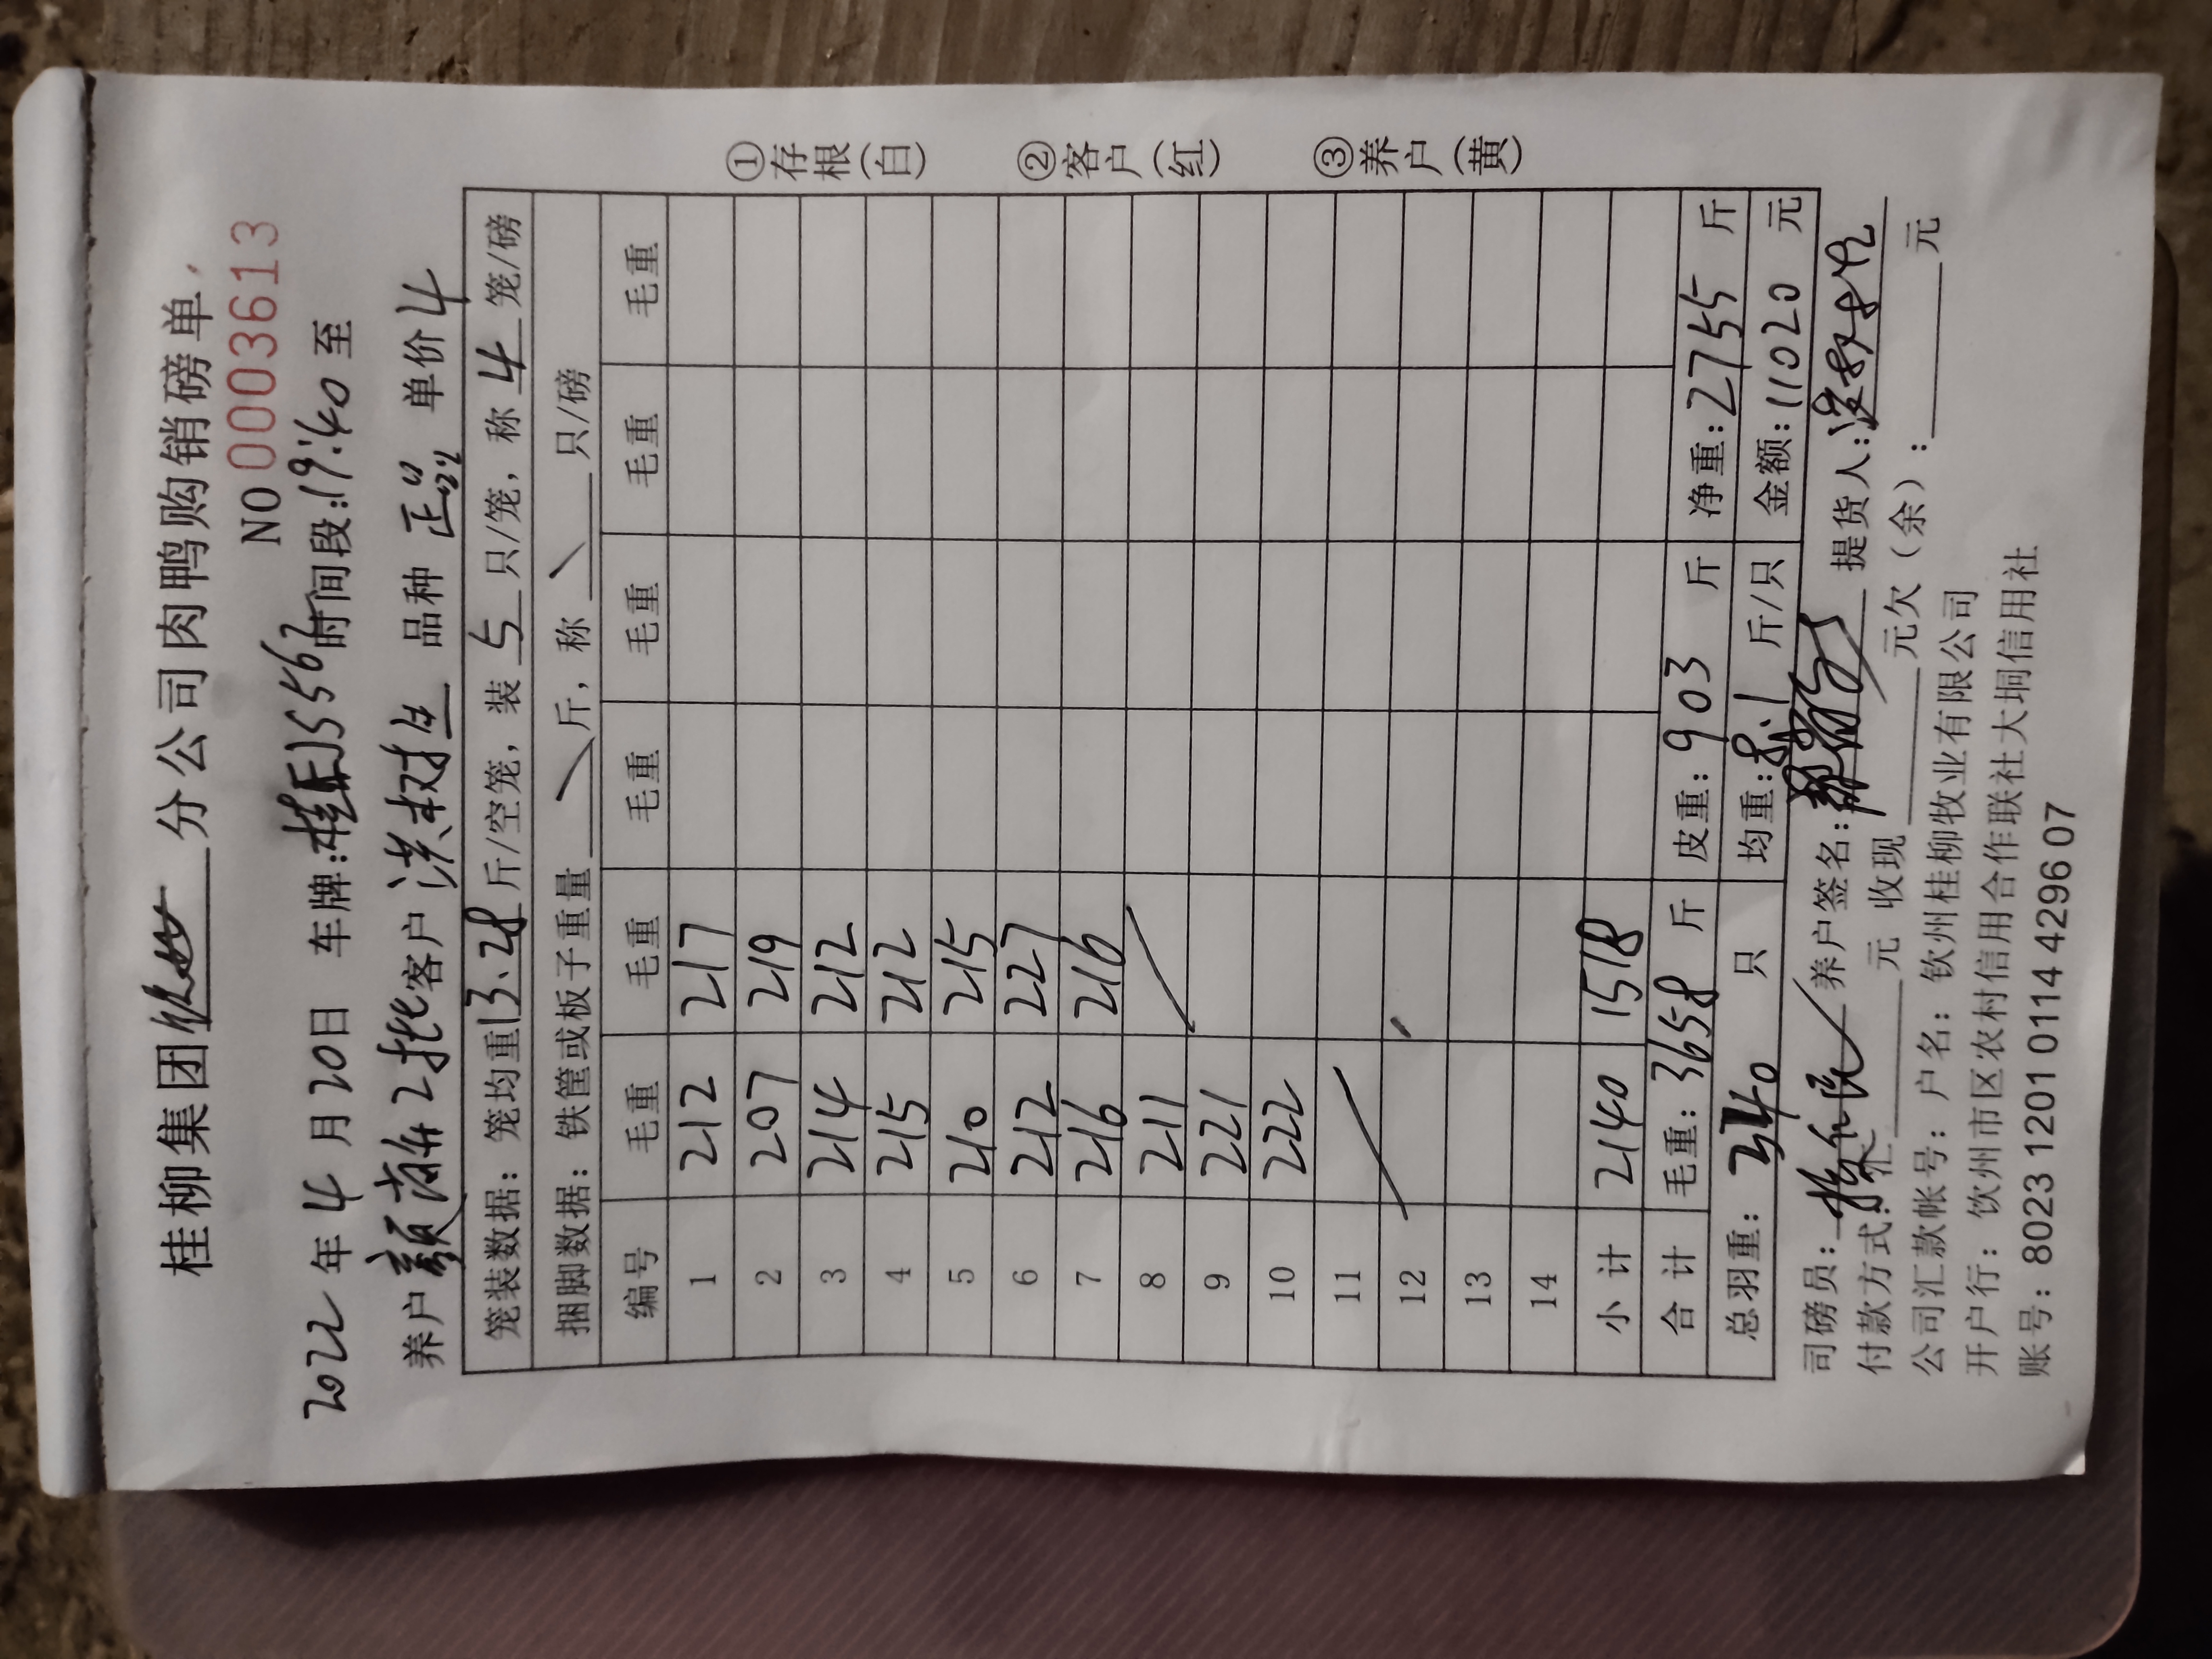 桂柳集团 分公司肉鸭购销磅单
NO 0003613
2022年4月20日 车牌:桂 时间段:19:40至
养户颜 2批客户洪树 品种 正品 单价4
笼装数据：笼均重13.28斤/空笼，装5只/笼，称4笼/磅
捆脚数据：铁筐或板子重量 斤，称 只/磅
编号 毛重 毛重 毛重 毛重 毛重 毛重
1 212 217
2 207 219
3 214 212
4 215 212
5 210 215
6 212 227
7 216 216
8 211
9 221
10 222
11
12
13
14
小计 2140 1518
合计 毛重：3658斤 皮重：903斤 净重：2755斤
总羽重：340只 均重：8.1斤/只 金额：11020元
①存根(白) ②客户(红) ③养户(黄)
司磅员： 养户签名： 提货人：
付款方式：汇 元 收现 元欠（余）： 元
公司汇款帐号：户名：钦州桂柳牧业有限公司
开户行：饮州市区农村信用合作联社大垌信用社
账号：8023 1201 0114 4296 07